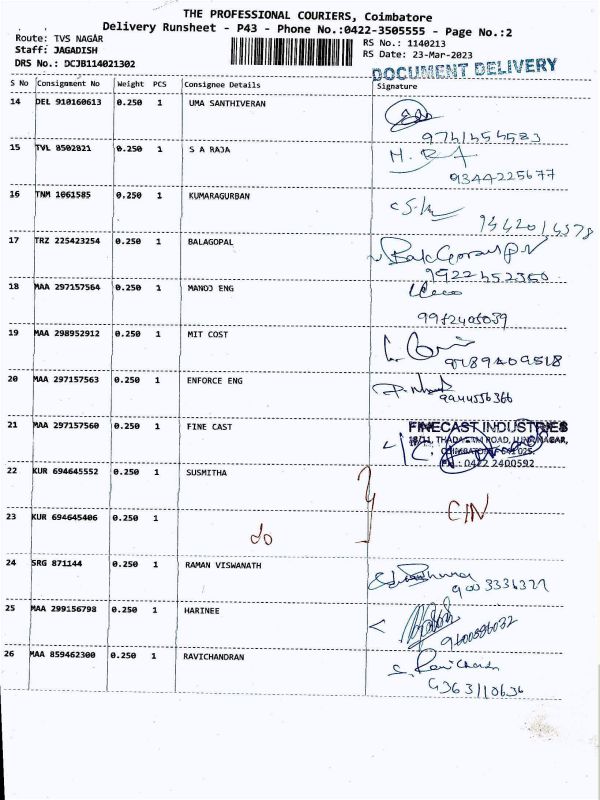 THE PROFESSIONAL COURIERS, Coimbatore
Delivery Runsheet - P43 - Phone No.:0422-3505555 - Page No.:2
Route: TVS NAGAR
RS No.: 1140213
Staff: JAGADISH
RS Date: 23-Mar-2023
DRS No.: DCJB114021302
DOCUMENT DELIVERY
S No Consignment No Weight PCS Consignee Details Signature
14 DEL 910160613 0.250 1 UMA SANTHIVERAN
9741454583
15 TVL 8502821 0.250 1 S A RAJA
9344225677
16 TNM 1061585 0.250 1 KUMARAGURBAN
9442014578
17 TRZ 225423254 0.250 1 BALAGOPAL
9522452350
18 MAA 297157564 0.250 1 MANOJ ENG
19 MAA 298952912 0.250 1 MIT COST
9789409518
20 MAA 297157563 0.250 1 ENFORCE ENG
9944556366
21 MAA 297157560 0.250 1 FINE CAST
FINECAST INDUSTRIES
PH : 0422 2400592
22 KUR 694645552 0.250 1 SUSMITHA
23 KUR 694645406 0.250 1
do
CIN
24 SRG 871144 0.250 1 RAMAN VISWANATH
25 MAA 299156798 0.250 1 HARINEE
9600596032
26 MAA 859462300 0.250 1 RAVICHANDRAN
S. Ravichandran
9363110636